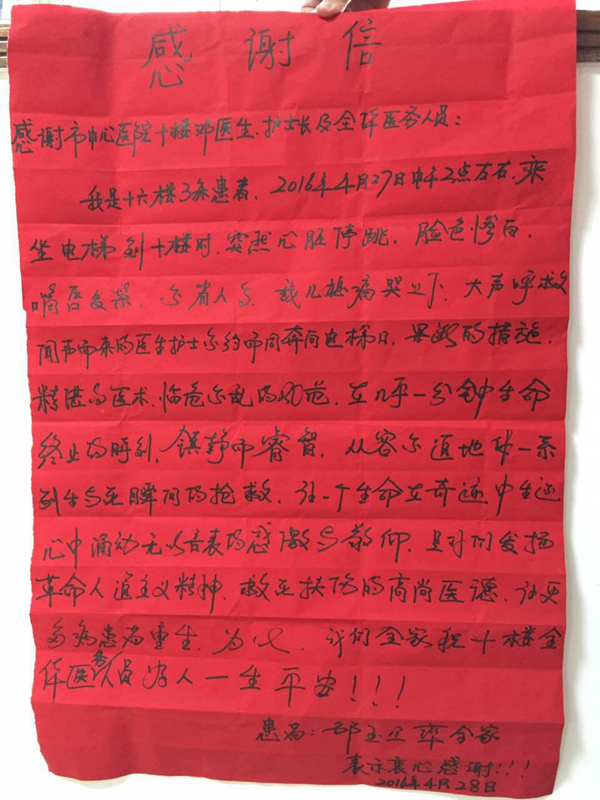 感谢信
感谢市中心医院十楼邓医生、护士长及全体医务人员：
我是十六楼3条患者、2016年4月27日中午2点左右、乘
坐电梯到十楼时、突然心脏停跳、脸色惨白、
嘴唇发紫、不省人事、我儿媳痛哭之下、大声呼救
闻声而来的医生护士不约而同奔向电梯口、果断的措施、
精湛的医术、临危不乱的、在几乎一分钟中生命
终止的时刻、镇静中睿智、从容不迫地体一系
列生与死瞬间的抢救、让一个生命在奇迹中生还
心中涌动无以言表的感激与敬仰、是对们发扬
革命人道主义精神、救死扶伤的高尚医德、让更
多病患者重生、为此、我们全家祝十楼全
体医务人员好人一生平安!!!
患者：邓玉 率全家
表示衷心感谢!!!
2016年4月28日